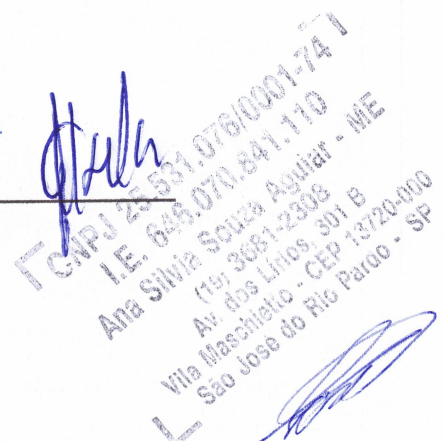 CNPJ 25.531.076/0001-74
I.E. 646.070.841.110
Ana Silvia Souza Aguiar - ME
(19) 3681-2308
Av. dos Lírios, 301 B
Vila Maschietto - CEP 13720-000
São José do Rio Pardo - SP